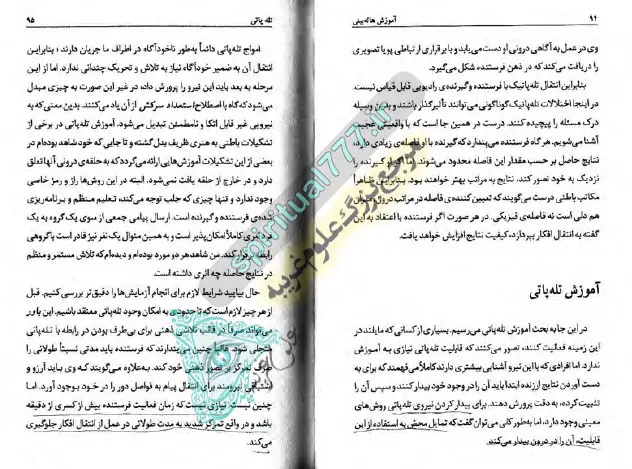 ۹۴
آموزش هاله‌بینی
وی در عمل به آگاهی درونی او دست می‌یابد و با برقراری ارتباطی پویا تصویری
را دریافت می‌کند که در ذهن فرستنده شکل می‌گیرد.
بنابراین انتقال تله‌پاتیک با فرستنده و گیرنده‌ی رادیویی قابل قیاس نیست.
در اینجا اختلالات تله‌پاتیک گوناگونی می‌توانند تأثیرگذار باشند و بدین وسیله
درک مسئله را پیچیده کنند. درست در همین جا است که با واقعیتی عجیب
آشنا می‌شویم. هر گاه فرستنده می‌پندارد که گیرنده با او فاصله‌ی زیادی دارد،
نتایج حاصل بر حسب مقدار این فاصله محدود می‌شوند. اما اگر او گیرنده را
نزدیک به خود تصور کند، نتایج به مراتب بهتر خواهند بود. بنابراین ظاهراً
مکاتب باطنی درست می‌گویند که تعیین کننده‌ی فاصله در مراتب درون میزان
هم دلی است نه فاصله‌ی فیزیکی. در هر صورت اگر فرستنده با اعتقاد به این
گفته به انتقال افکار بپردازد، کیفیت نتایج افزایش خواهد یافت.
آموزش تله‌پاتی
در این جا به بحث آموزش تله‌پاتی می‌رسیم. بسیاری از کسانی که مایلند در
این زمینه فعالیت کنند، تصور می‌کنند که قابلیت تله‌پاتی نیازی به آموزش
ندارد. اما افرادی که با این نیرو آشنایی بیشتری دارند کاملاً می‌فهمند که برای به
دست آوردن نتایج ارزنده ابتدا باید آن را در وجود خود بیدار کنند و سپس آن را
تثبیت کرده، به دقت پرورش دهند. برای بیدار کردن نیروی تله‌پاتی روش‌های
معینی وجود دارد، اما به‌طور کلی می‌توان گفت که تمایل محض به استفاده از این
قابلیت، آن را در درون بیدار می‌کند.
تله پاتی
۹۵
امواج تله‌پاتی دائماً به‌طور ناخودآگاه در اطراف ما جریان دارند؛ بنابراین
انتقال آن به ضمیر خودآگاه نیاز به تلاش و تحریک چندانی ندارد. اما از این
مرحله به بعد باید این نیرو را پرورش داد، در غیر این صورت به چیزی مبدل
می‌شود که گاه با اصطلاح استعداد سرکش از آن یاد می‌کنند. بدین معنی که به
نیرویی غیر قابل اتکا و نامطمئن تبدیل می‌شود. آموزش تله‌پاتی در برخی از
تشکیلات باطنی به هنری ظریف بدل گشته و تا جایی که خود شاهد بوده‌ام در
بعضی از این تشکیلات آموزش‌هایی ارائه می‌گردد که به حلقه‌ی درونی آنها تعلق
دارد و در خارج از حلقه یافت نمی‌شود. البته در این روش‌ها راز و رمز خاصی
وجود ندارد و تنها چیزی که جلب توجه می‌کند، تعلیم منظم و برنامه‌ریزی
شده‌ی فرستنده و گیرنده است. ارسال پیامی جمعی از سوی یک گروه به یک
فرد نیز کاملاً امکان‌پذیر است و به همین منوال یک نفر نیز قادر است با گروهی
رابطه برقرار کند. من شاهد هر دو مورد بوده‌ام و دیده‌ام که تلاش مستمر و منظم
در نتایج حاصله چه اثری داشته است.
حال بیایید شرایط لازم برای انجام آزمایش‌ها را دقیق‌تر بررسی کنیم. قبل
از هر چیز لازم است که تا حدودی به امکان وجود تله‌پاتی معتقد باشیم. این باور
می‌تواند صرفاً در قالب تلاشی ذهنی برای بی‌طرف بودن در رابطه با تله‌پاتی
متجلی شود. غالباً چنین می‌پندارند که فرستنده باید مدتی نسبتاً طولانی را
صرف تمرکز بر تصویر ذهنی خود کند. به‌علاوه می‌گویند که وی باید آرزو و
اشتیاقی نیرومند برای انتقال پیام به فواصل دور را در خود بوجود آورد. اما
چنین نیست. نیازی نیست که زمان فعالیت فرستنده بیش از کسری از دقیقه
باشد و در واقع تمرکز شدید به مدت طولانی در عمل از انتقال افکار جلوگیری
می‌کند.
spiritual777.ir
مرجع بزرگ علوم غریبه